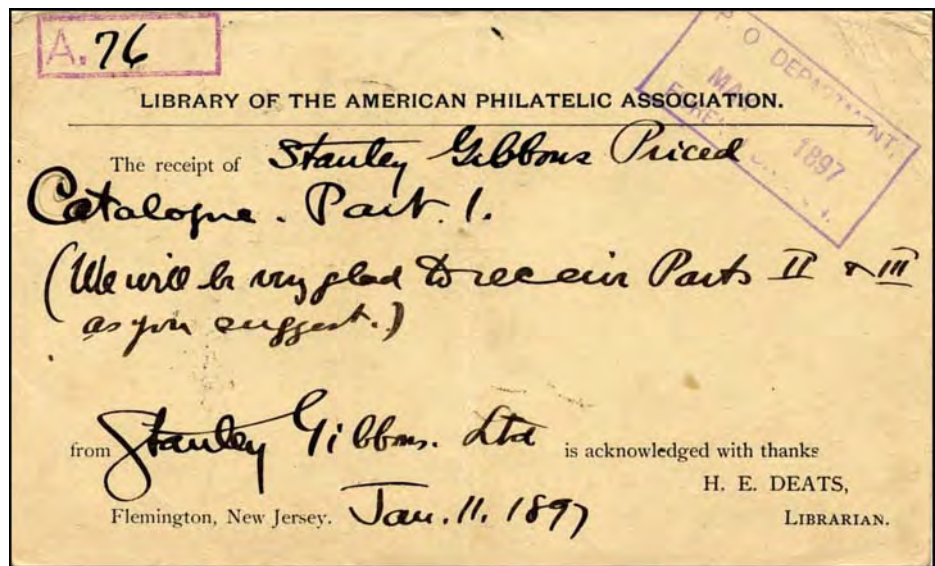 A. 76
P. O. DEPARTMENT,
1897
LIBRARY OF THE AMERICAN PHILATELIC ASSOCIATION.
The receipt of Stanley Gibbons Priced
Catalogue. Part. 1.
(We will be very glad to receive Parts II & III
as you suggest.)
from Stanley Gibbons. Ltd is acknowledged with thanks
H. E. DEATS,
Flemington, New Jersey. Jan. 11. 1897 LIBRARIAN.